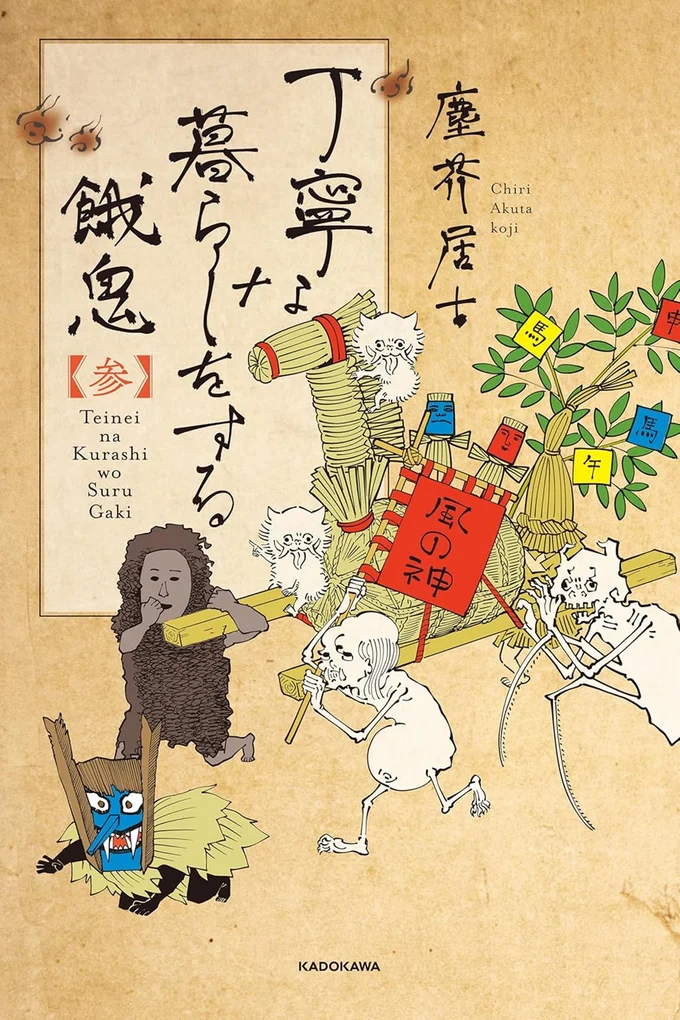 塵芥居士
Chiri
Akuta
koji
丁寧な
暮らしをする
餓鬼
《参》
Teinei
na
Kurashi
wo
Suru
Gaki
馬
申
馬
午
風の神
KADOKAWA